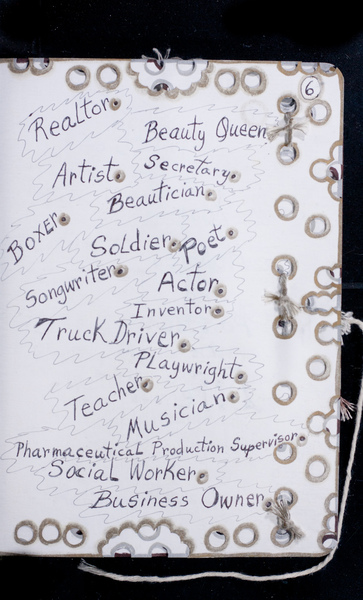 6
Realtor.
Beauty Queen
Artist. Secretary.
Beautician.
Boxer.
Soldier. Poet.
Songwriter.
Actor.
Inventor.
Truck Driver.
Playwright.
Teacher.
Musician.
Pharmaceutical Production Supervisor.
Social Worker.
Business Owner.